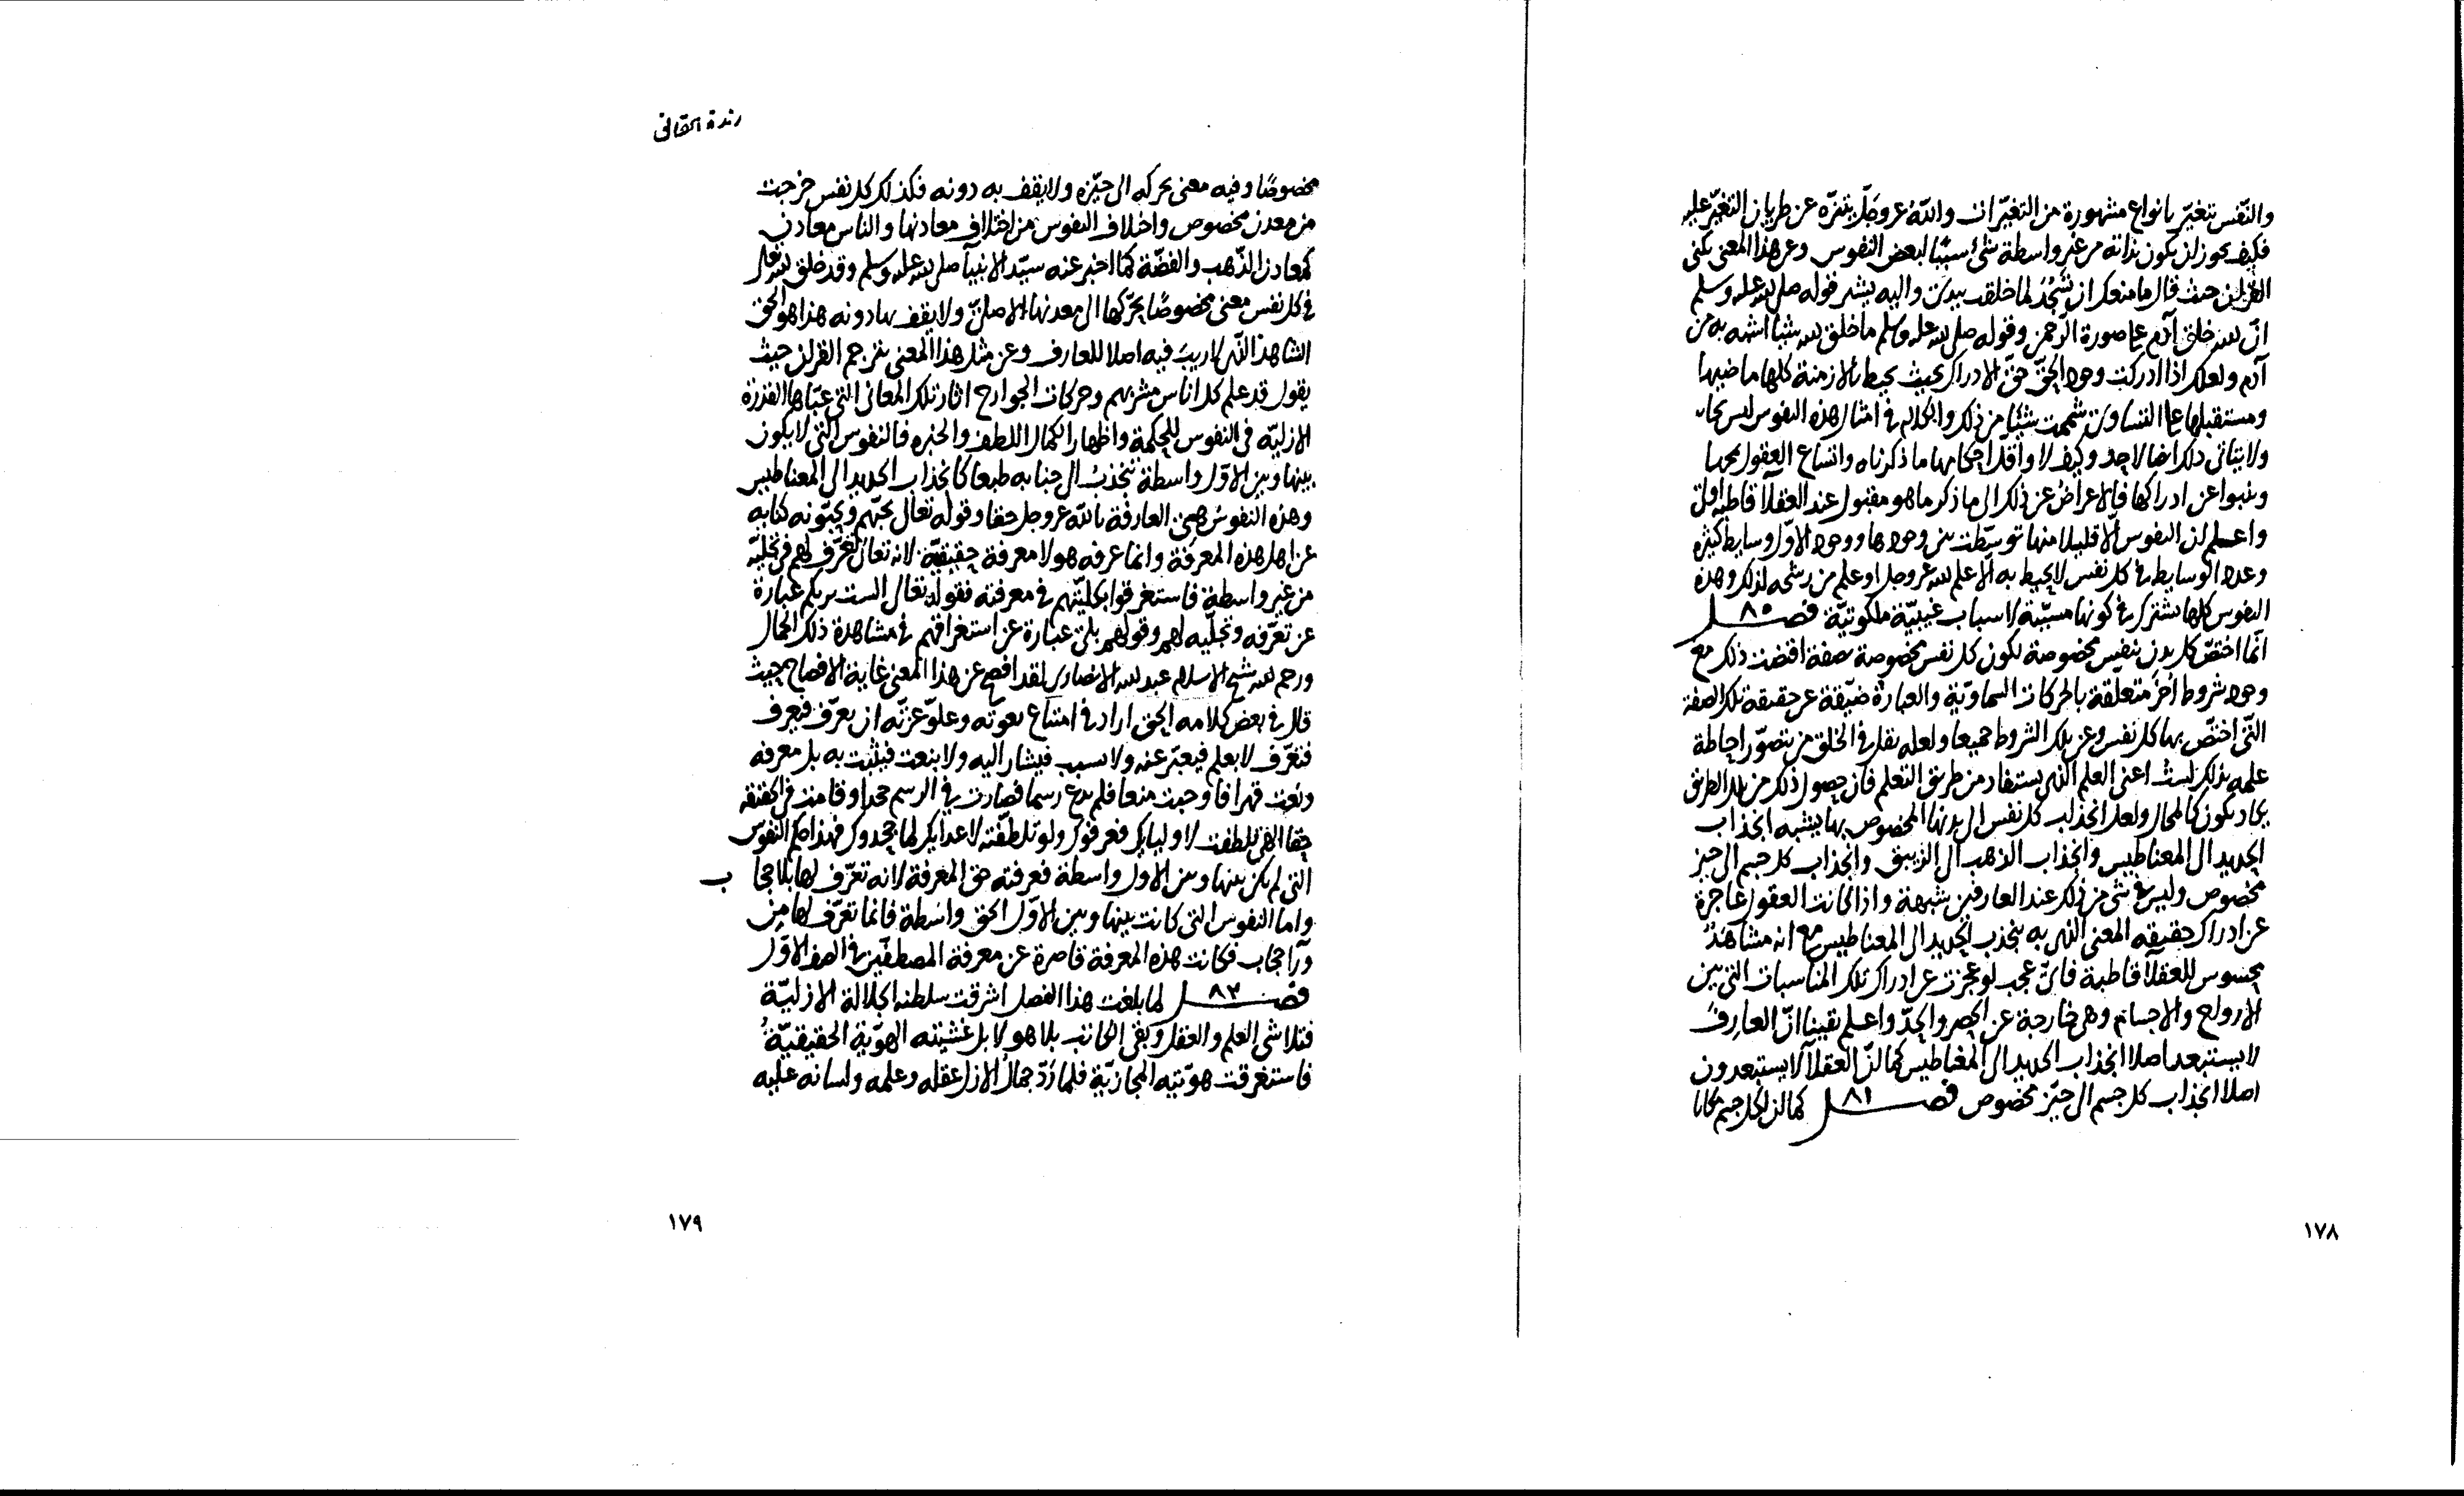 والنّفس تتغيّر بانواع مشهورة من التغيّرات واللّه عزوجلّ يتنزّه عن طريان التغيّر عليه
فكيف يجوز ان يكون بذاته من غير واسطة شئ سببًا لبعض النفوس وعن هذا المعنى يكنى
القرآن حيث قال ما منعك ان تسجد لما خلقت بيدىّ واليه يشير قوله صلى الله عليه وسلم
انّ الله خلق آدم على صورة الرحمن وقوله صلى الله عليه وسلم ما خلق الله شيئا اشبه به من
آدم ولعلك اذا ادركت وجود الحقّ حقّ الادراك بحيث يحيط بالازمنة كلها ماضيها
ومستقبلها على التساوى شممت شيئا من ذلك والكلام فى امثال هذه النفوس ليس بحا
ولا يتاتى ذلك ايضا لاحد وكيف لا واقل احكامها ما ذكرناه واتساع العقول
وينبوا عن ادراكها فالاعراض عن ذلك الى ما ذكر ما هو مقبول عند العقلآ قاطبة اولى
واعلم ان النفوس الّا قليلا منها توسّطت بين وجودها ووجود الاوّل وسايط كثيرة
وعدد الوسايط فى كل نفس لا يحيط به الا علم الله عزوجل او علم من رشحه لذلك وهذه
النفوس كلها تشترك فى كونها مسبّبة لاسباب غيبيّة ملكوتيّة فصــل ٨٠
انّما اختصّ كل بدن بنفس مخصوصة لكون كل نفس مخصوصة بصفة اقتضت ذلك مع
وجود شروط اُخَر متعلقة بالحركات السماويّة والعبارة ضيّقة عن حقيقة تلك الصفة
التّى اختصّ بها كل نفس وعن تلك الشروط جميعا ولعله يقل فى الخلق من يتصوّر احاطة
علمه بذلك لست اعنى العلم الذى يستفاد من طريق التعلم فان حصول ذلك من هذا الطريق
يكاد يكون كالمحال ولعل انجذاب كل نفس الى بدنها المخصوص بها يشبه انجذاب
الحديد الى المغناطيس وانجذاب الذهب الى الزيبق وانجذاب كل جسم الى حيز
مخصوص وليس فى شئ من ذلك عند العارفين شبهة واذا كانت العقول عاجزة
عن ادراك حقيقه المعنى الذى به ينجذب الحديد الى المغناطيس مع انه مشاهدٌ
محسوس للعقلآ قاطبة فاىّ عجب لو عجزت عن ادراك تلك المناسبات التى بين
الارواح والاجسام وهى خارجة عن الحصر والحدّ واعلم يقينا انّ العارف
لا يستبعد اصلا انجذاب الحديد الى المغناطيس كما انّ العقلآ لا يستبعدون
اصلا انجذاب كل جسم الى حيّز مخصوص فصــل ٨١ كما ان لكل جسم مكانا
١٧٨
زبدة الحقائق
مخصوصًا وفيه معنى يحركه الى حيّزه ولا يقف به دونه فكذلك كل نفس خرجت
من معدن مخصوص واختلاف النفوس من اختلاف معادنها والناس معادن
كمعادن الذّهب والفضّة كما اخبر عنه سيّد الانبيآ صلى الله عليه وسلم وقد خلق الله تعالى
فى كل نفس معنى مخصوصًا يحرّكها الى معدنها الاصلىّ ولا يقف بها دونه هذا هو الحق
الشاهد الذى لا ريبَ فيه اصلا للعارف وعن مثل هذا المعنى يترجم القرآن حيث
يقول قد علم كل اناس مشربهم وحركات الجوارح اثار تلك المعانى التى عبّاها القدرة
الازليّة فى النفوس للحكمة واظهار الكمال اللطف والخبره فالنفوس التى لا يكون
بينها وبين الاوّل واسطة تنجذبُ الى جنابه طبعا كانجذاب الحديد الى المغناطيس
وهذه النفوس هى العارفة باللّه عزوجل حقا وقوله تعالى يحبّهم ويحبّونه كنايه
عن اهل هذه المعرفة وانما عرفه هولا معرفة حقيقيّة لانه تعالى تعرّف لهم فى تجليّه
من غير واسطة فاستغرقوا بكليّتهم فى معرفته فقوله تعالى الست بربكم عبارة
عن تعرّفه وتجلّيه لهم وقولهم بلى عبارة عن استغراقهم فى مشاهدة ذلك الجمال
ورحم الله شيخ الاسلام عبد الله الانصارى لقد افصح عن هذا المعنى غاية الافصاح حيث
قال فى بعض كلامه الحق اراد فى امتناع نعوته وعلوّ عزّته ان يعرّف فيعرف
فتعرّف لا بعلم فيعبّر عنه ولا بسبب فيشار اليه ولا بنعت فيثبت به بل معرفه
ونعت قهرا فاوجبت منعا فلم يدع رسما فصارت فى الرسم جحدا وقامت فى الحقيقه
حقا الهى تلطفت لاوليايك فعرفوك ولو تلطّفت لاعدايك لما جحدوك فهذا حكم النفوس
التى لم يكن بينها وبين الاول واسطة فعرفته حق المعرفة لانه تعرّف لها بلا حجا ب
واما النفوس التى كانت بينها وبين الاوّل الحق واسطة فانما تعرّف لها من
ورآ حجاب فكانت هذه المعرفة قاصرة عن معرفة المصطفَين فى الصف الاوّل
فصــل ٨٢ لما بلغت هذا الفصل اشرقت سلطنه الجلالة الازليّة
فتلاشى العلم والعقل وبقى الكاتب بلا هو لا بل غشيته الهويّة الحقيقيّةُ
فاستغرقت هويّته المجازيّة فلما ردّ جمالُ الازل عقله وعلمه ولسانه عليه
١٧٩